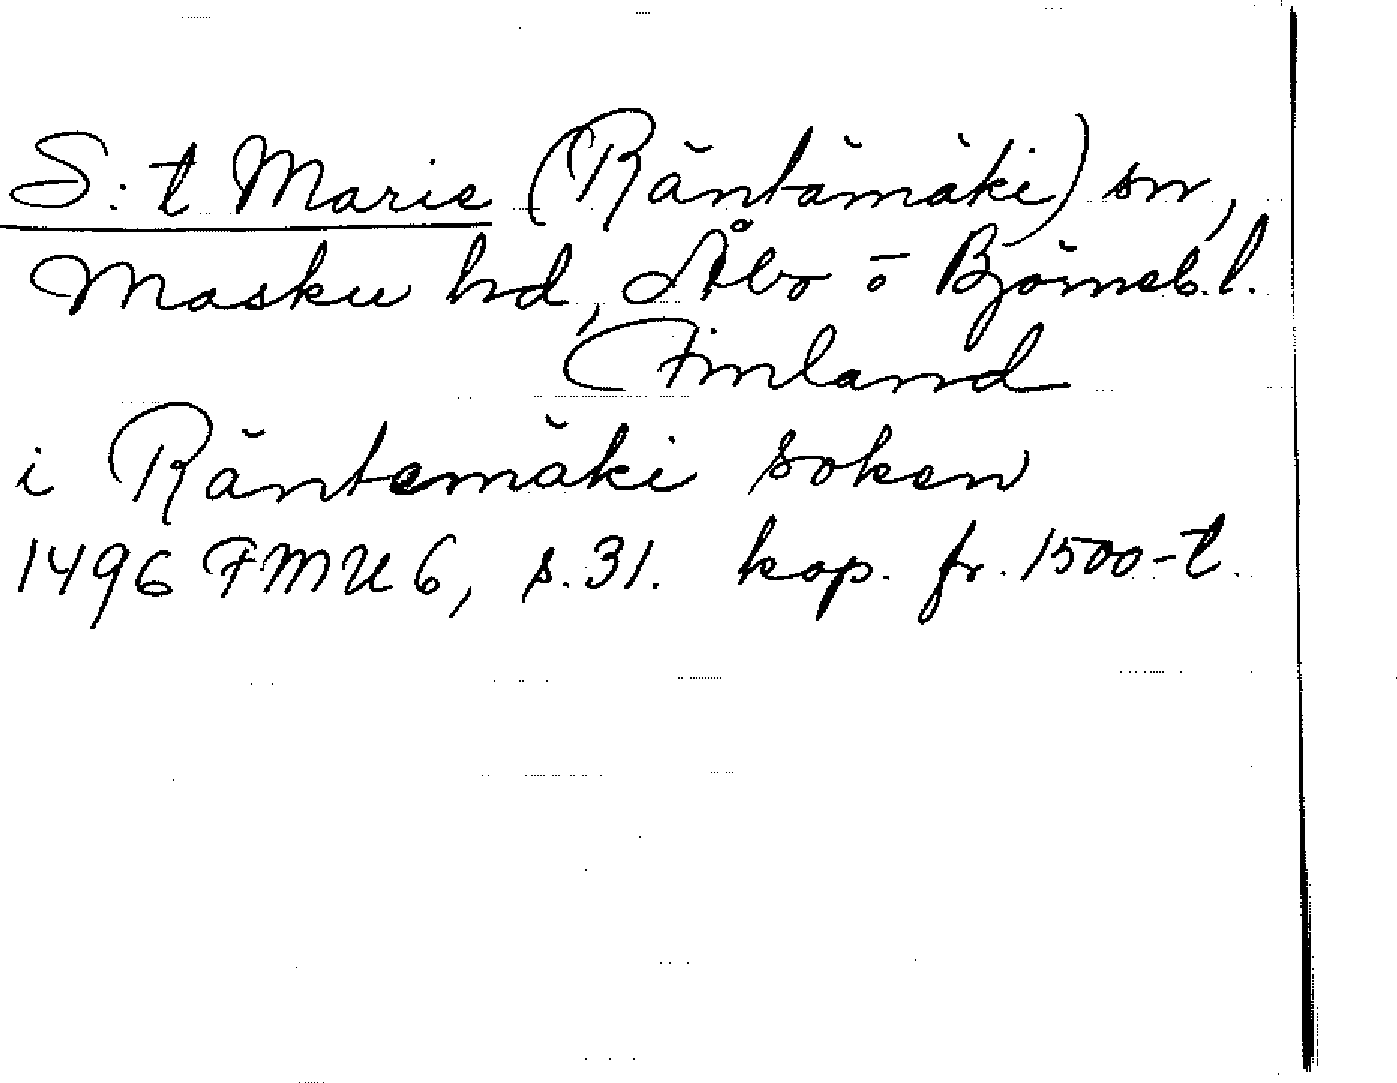 S:t Marie (Räntämäki) sn,
Masku hd, Åbo o Björneb.l.
Finland
i Räntemäki soken
1496 FMU 6, s. 31. kop. fr. 1500-t.